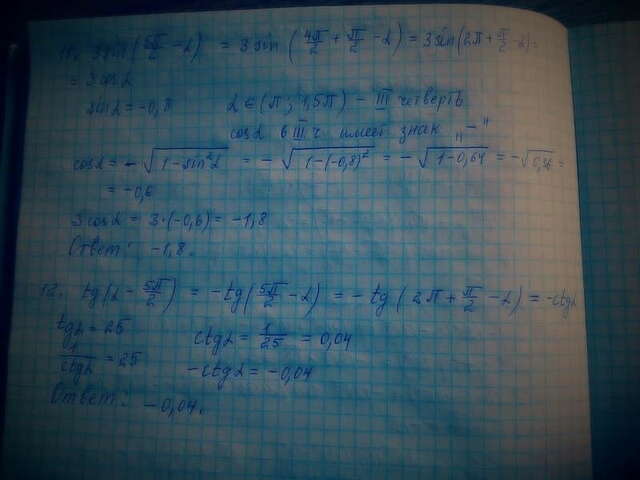 11. 3 sin (5π/2 - α) = 3 sin (4π/2 + π/2 - α) = 3 sin (2π + π/2 - α) =
= 3 cos α
sin α = -0,8 α ∈ (π; 1,5π) - III четверть
cos α в III ч. имеет знак "-"
cos α = - √(1 - sin²α) = - √(1 - (-0,8)²) = - √(1 - 0,64) = - √0,36 =
= -0,6
3 cos α = 3·(-0,6) = -1,8
Ответ: -1,8.
12. tg (α - 5π/2) = - tg (5π/2 - α) = - tg (2π + π/2 - α) = - ctg α
tg α = 25 ctg α = 1/25 = 0,04
1/ctg α = 25 - ctg α = -0,04
Ответ: -0,04.